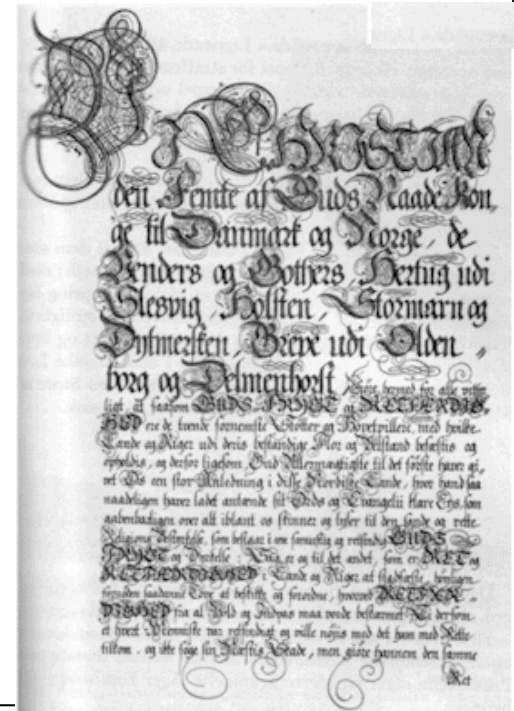 CHRISTIAN
den Femte af Guds Naade Kon,
ge til Danmark og Norge, de
Venders og Gothers, Hertug udi
Slesvig, Holsten, Stormarn og
Dytmersken, Greve udi Olden,
borg og Delmenhorst, Giøre hermed for alle vitter,
ligt, at saasom GUDS-FRYGT og RETFÆRDIG,
HED ere de tvende fornemste Støtter og Hovetpillere, med hvilke
Lande og Riger udi deris bestandige Flor og Velstand befæstis og
opholdis, og derfor ligesom Gud Allermægtigste til det første haver gi,
vet Os en stor Anledning i disse Nordiske Lande, hvor hand saa
naadeligen haver ladet antænde sit Ords og Evangelii klare Lys, som
aabenbarligen over alt iblant os skinner og lyser til den sande og rette
Religions Bekiendelse, som bestaar i een fornuftig og retsindig GUDS
FRYGT og Dyrkelse; Saa er og til det andet, som er RET og
RETFÆRDIGHED i Lande og Riger at stadfæste, høyligen
fornøden saadanne Love at beskikke og forordne, hvorved RETFÆR,
DIGHED fra al Vold og Indpas maa vorde beskærmet. Thi dersom
et hvert Menniske var retsindigt og ville nøjis med det ham med Rette
tilkom, og ikke søge sin Næstis Skade, men giøre hannem den samme
Ret